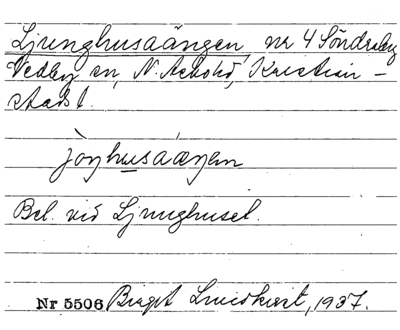 Ljunghusaängen, nr 4 Söndraby
Vedby sn, N. Åsbohd, Kristian-
stads l.
jònhusáæŋen
Bel. vid Ljunghuset.
Nr 5506 Birgit Lundkvist, 1937.